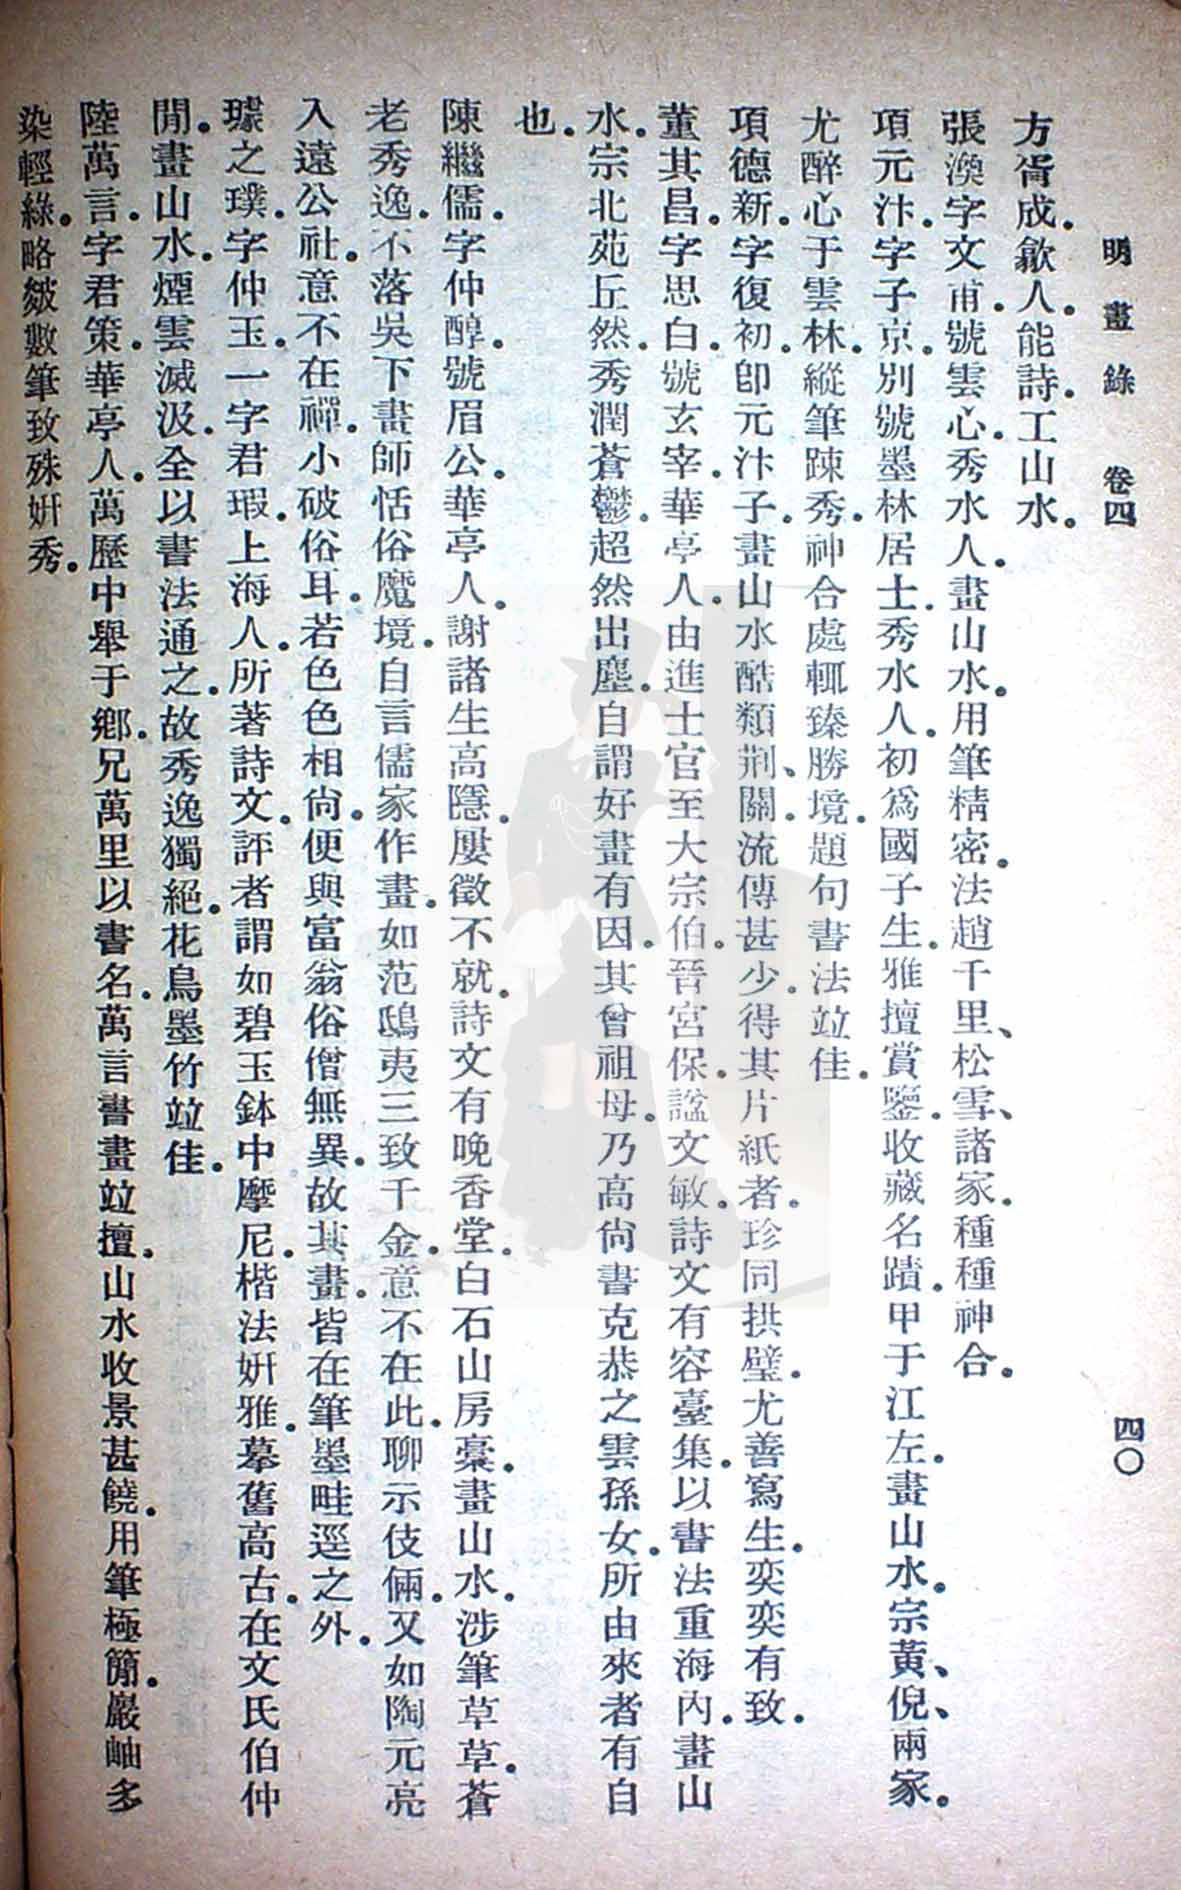 明畫錄　卷四　四〇
方胥成。歙人。能詩。工山水。
張渙字文甫。號雲心。秀水人。畫山水。用筆精密。法趙千里、松雪、諸家。種種神合。
項元汴。字子京。別號墨林居士。秀水人。初爲國子生。雅擅賞鑒。收藏名蹟。甲于江左。畫山水。宗黃、倪、兩家。
尤醉心于雲林。縱筆踈秀。神合處輒臻勝境。題句書法竝佳。
項德新。字復初。卽元汴子。畫山水酷類荆、關。流傳甚少。得其片紙者。珍同拱璧。尤善寫生。奕奕有致。
董其昌。字思白。號玄宰。華亭人。由進士官至大宗伯。晉宮保。諡文敏。詩文有容臺集。以書法重海內。畫山
水。宗北苑丘然。秀潤蒼鬱。超然出塵。自謂好畫有因。其曾祖母。乃高尙書克恭之雲孫女。所由來者有自
也。
陳繼儒。字仲醇。號眉公。華亭人。謝諸生高隱。屢徵不就。詩文有晚香堂。白石山房稾。畫山水。涉筆草草。蒼
老秀逸。不落吳下畫師恬俗魔境。自言儒家作畫。如范鴟夷三致千金。意不在此。聊示伎倆。又如陶元亮
入遠公社。意不在禪。小破俗耳。若色色相尙。便與富翁俗僧無異。故其畫。皆在筆墨畦逕之外。
璩之璞。字仲玉。一字君瑕。上海人。所著詩文。評者謂如碧玉鉢中摩尼。楷法姸雅。摹舊高古。在文氏伯仲
閒。畫山水。煙雲滅汲。全以書法通之。故秀逸獨絕。花鳥墨竹竝佳。
陸萬言。字君策。華亭人。萬歷中舉于鄉。兄萬里以書名。萬言書畫竝擅。山水收景甚饒。用筆極簡。巖岫多
染輕綠。略皴數筆致殊姸秀。